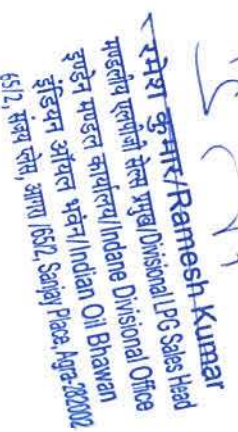 रमेश कुमार/Ramesh Kumar
मण्डलीय एलपीजी सेल्स प्रमुख/Divisional LPG Sales Head
इण्डेन मण्डल कार्यालय/Indane Divisional Office
इंडियन ऑयल भवन/Indian Oil Bhawan
65/2, संजय प्लेस, आगरा /65/2, Sanjay Place, Agra-282002